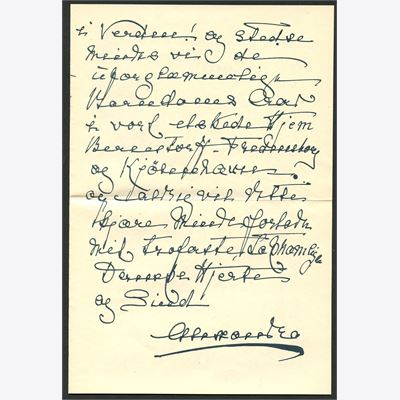 i Verden! og stedse
mindes vi de
uforglemmelige
Barndoms Aar
i vort elskede Hjem
Bernstorff - Fredensborg
og Kjöbenhavn
og aldrig vil disse
kjære Minder forlade
mit trofaste,
Danske Hjerte
og Sind
Alexandra